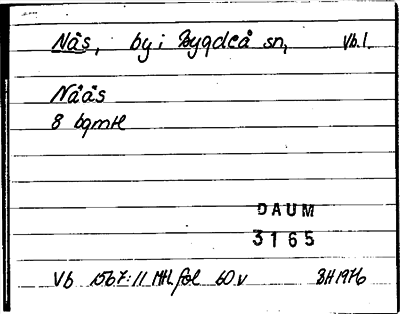 Nås, by i Bygdeå sn, Vb.l.
Nåås
8 bqmtl
DAUM
3165
Vb 1567:11 Mtl fol 60v BH 1976